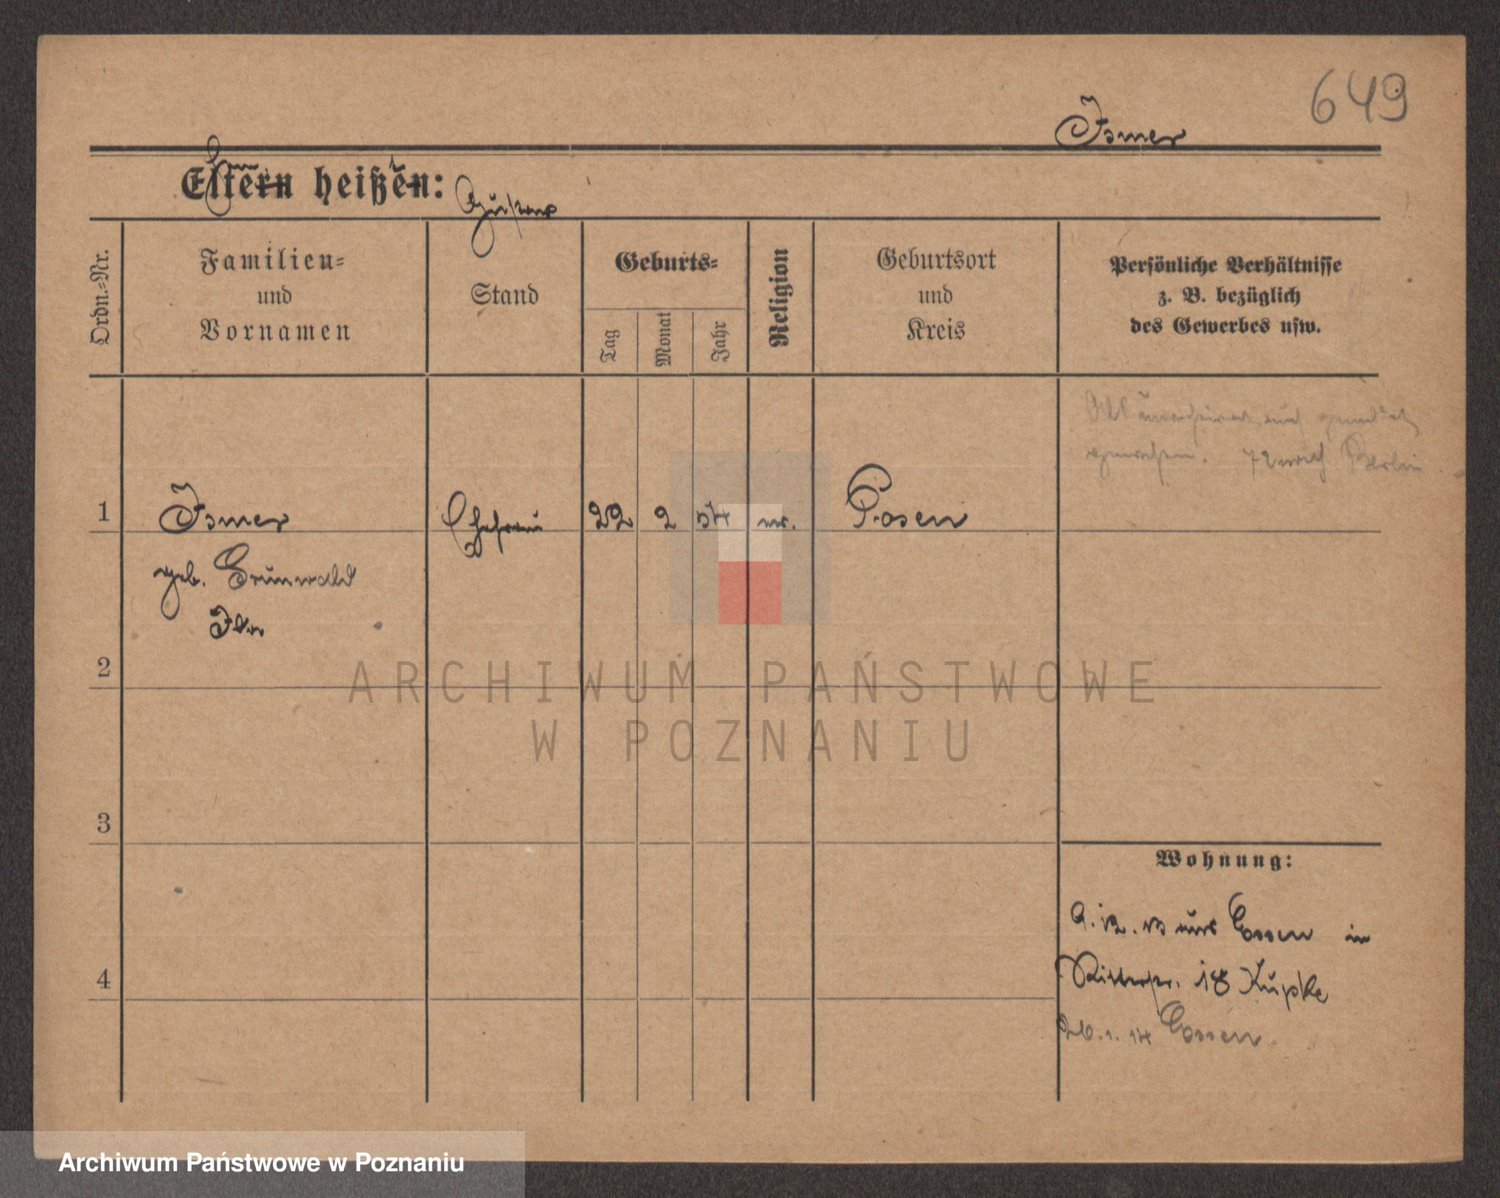 649
Ismer
Eltern heißen:
Gustav
Ordn.-Nr.
Familien-
und
Vornamen
Stand
Geburts-
Tag
Monat
Jahr
Religion
Geburtsort
und
Kreis
Persönliche Verhältnisse
z. B. bezüglich
des Gewerbes usw.
1
Ismer
Ehefrau
22
2
54
Posen
geb. Grünwald
Ida
2
3
4
Wohnung:
9.12.13 aus Essen in
Ritterstr. 18 Kupke
26.1.14 Essen
ARCHIWUM PAŃSTWOWE
W POZNANIU
Archiwum Państwowe w Poznaniu